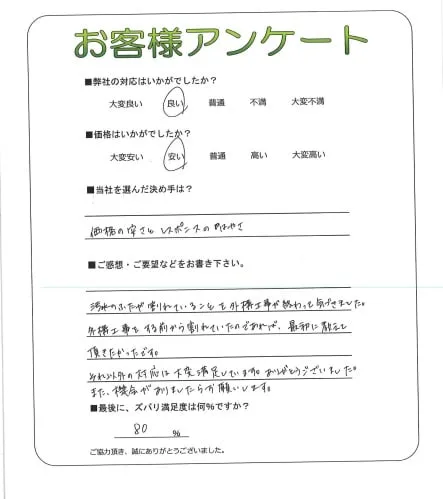 お客様アンケート
■弊社の対応はいかがでしたか？
大変良い 良い 普通 不満 大変不満
■価格はいかがでしたか？
大変安い 安い 普通 高い 大変高い
■当社を選んだ決め手は？
価格の安さと レスポンスのはやさ
■ご感想・ご要望などをお書き下さい。
汚水のふたが割れていることを外構工事が終わって気づきました。
外構工事をする前から割れていたのであれば、最初に教えて
頂きたかったです。
それ以外の対応は大変満足しています。ありがとうございました。
また、機会がありましたらお願いします。
■最後に、ズバリ満足度は何％ですか？
80 ％
ご協力頂き、誠にありがとうございました。